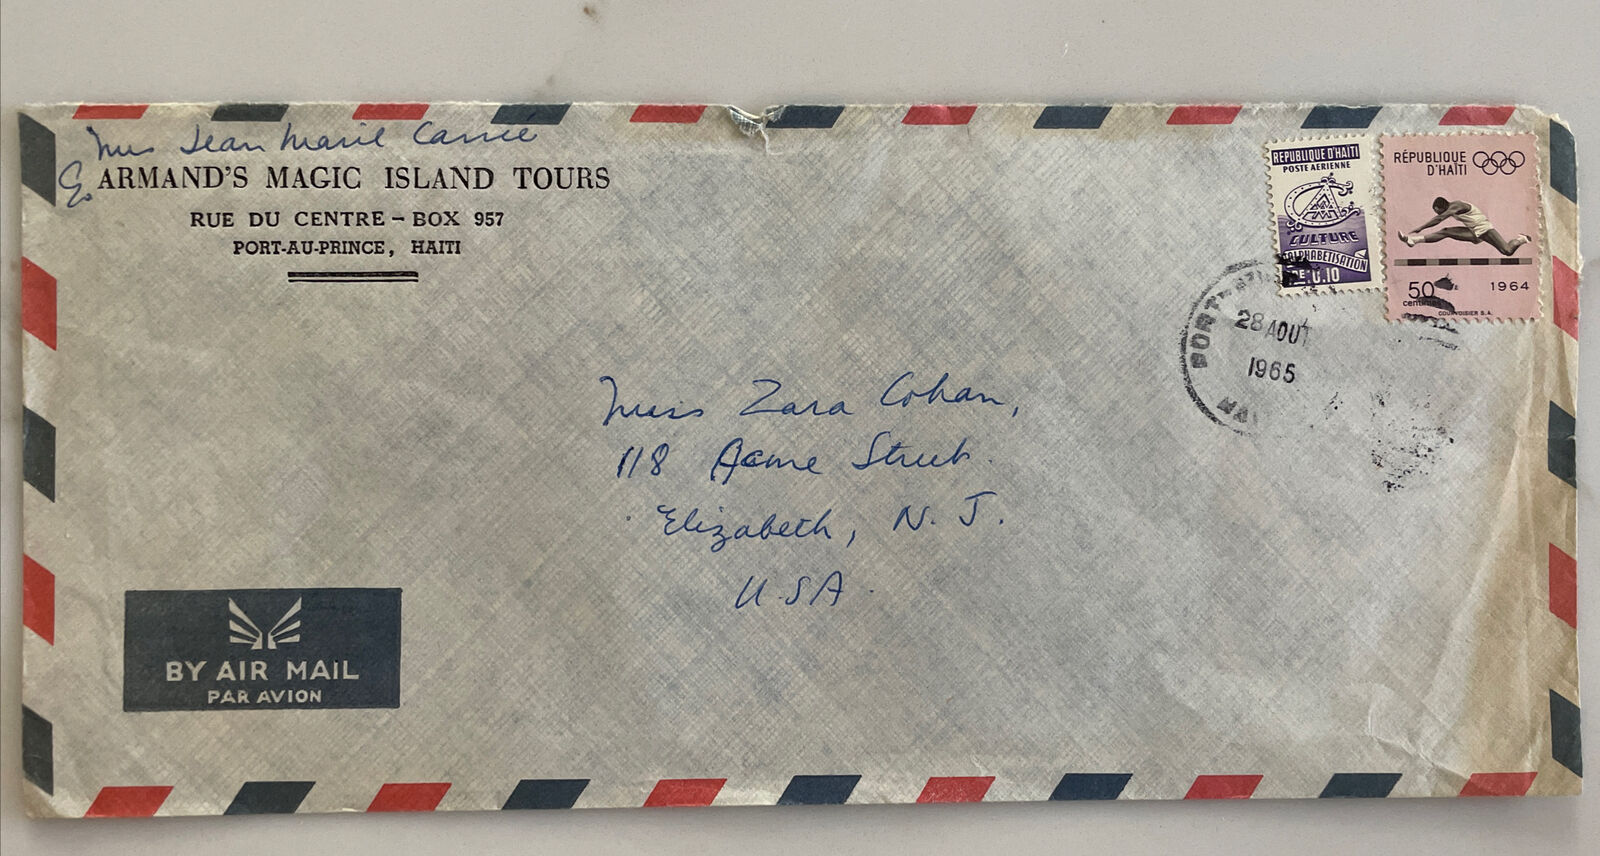 Miss Jean Marie Carrié
C/o ARMAND'S MAGIC ISLAND TOURS
RUE DU CENTRE - BOX 957
PORT-AU-PRINCE, HAITI
REPUBLIQUE D'HAITI
POSTE AERIENNE
CULTURE
ALPHABETISATION
0.10
RÉPUBLIQUE
D'HAÏTI
50
centimes
1964
COURVOISIER S.A.
PORT
28 AOUT
1965
Miss Zara Cohan,
118 Acme Street.
Elizabeth, N. J.
U.S.A.
BY AIR MAIL
PAR AVION